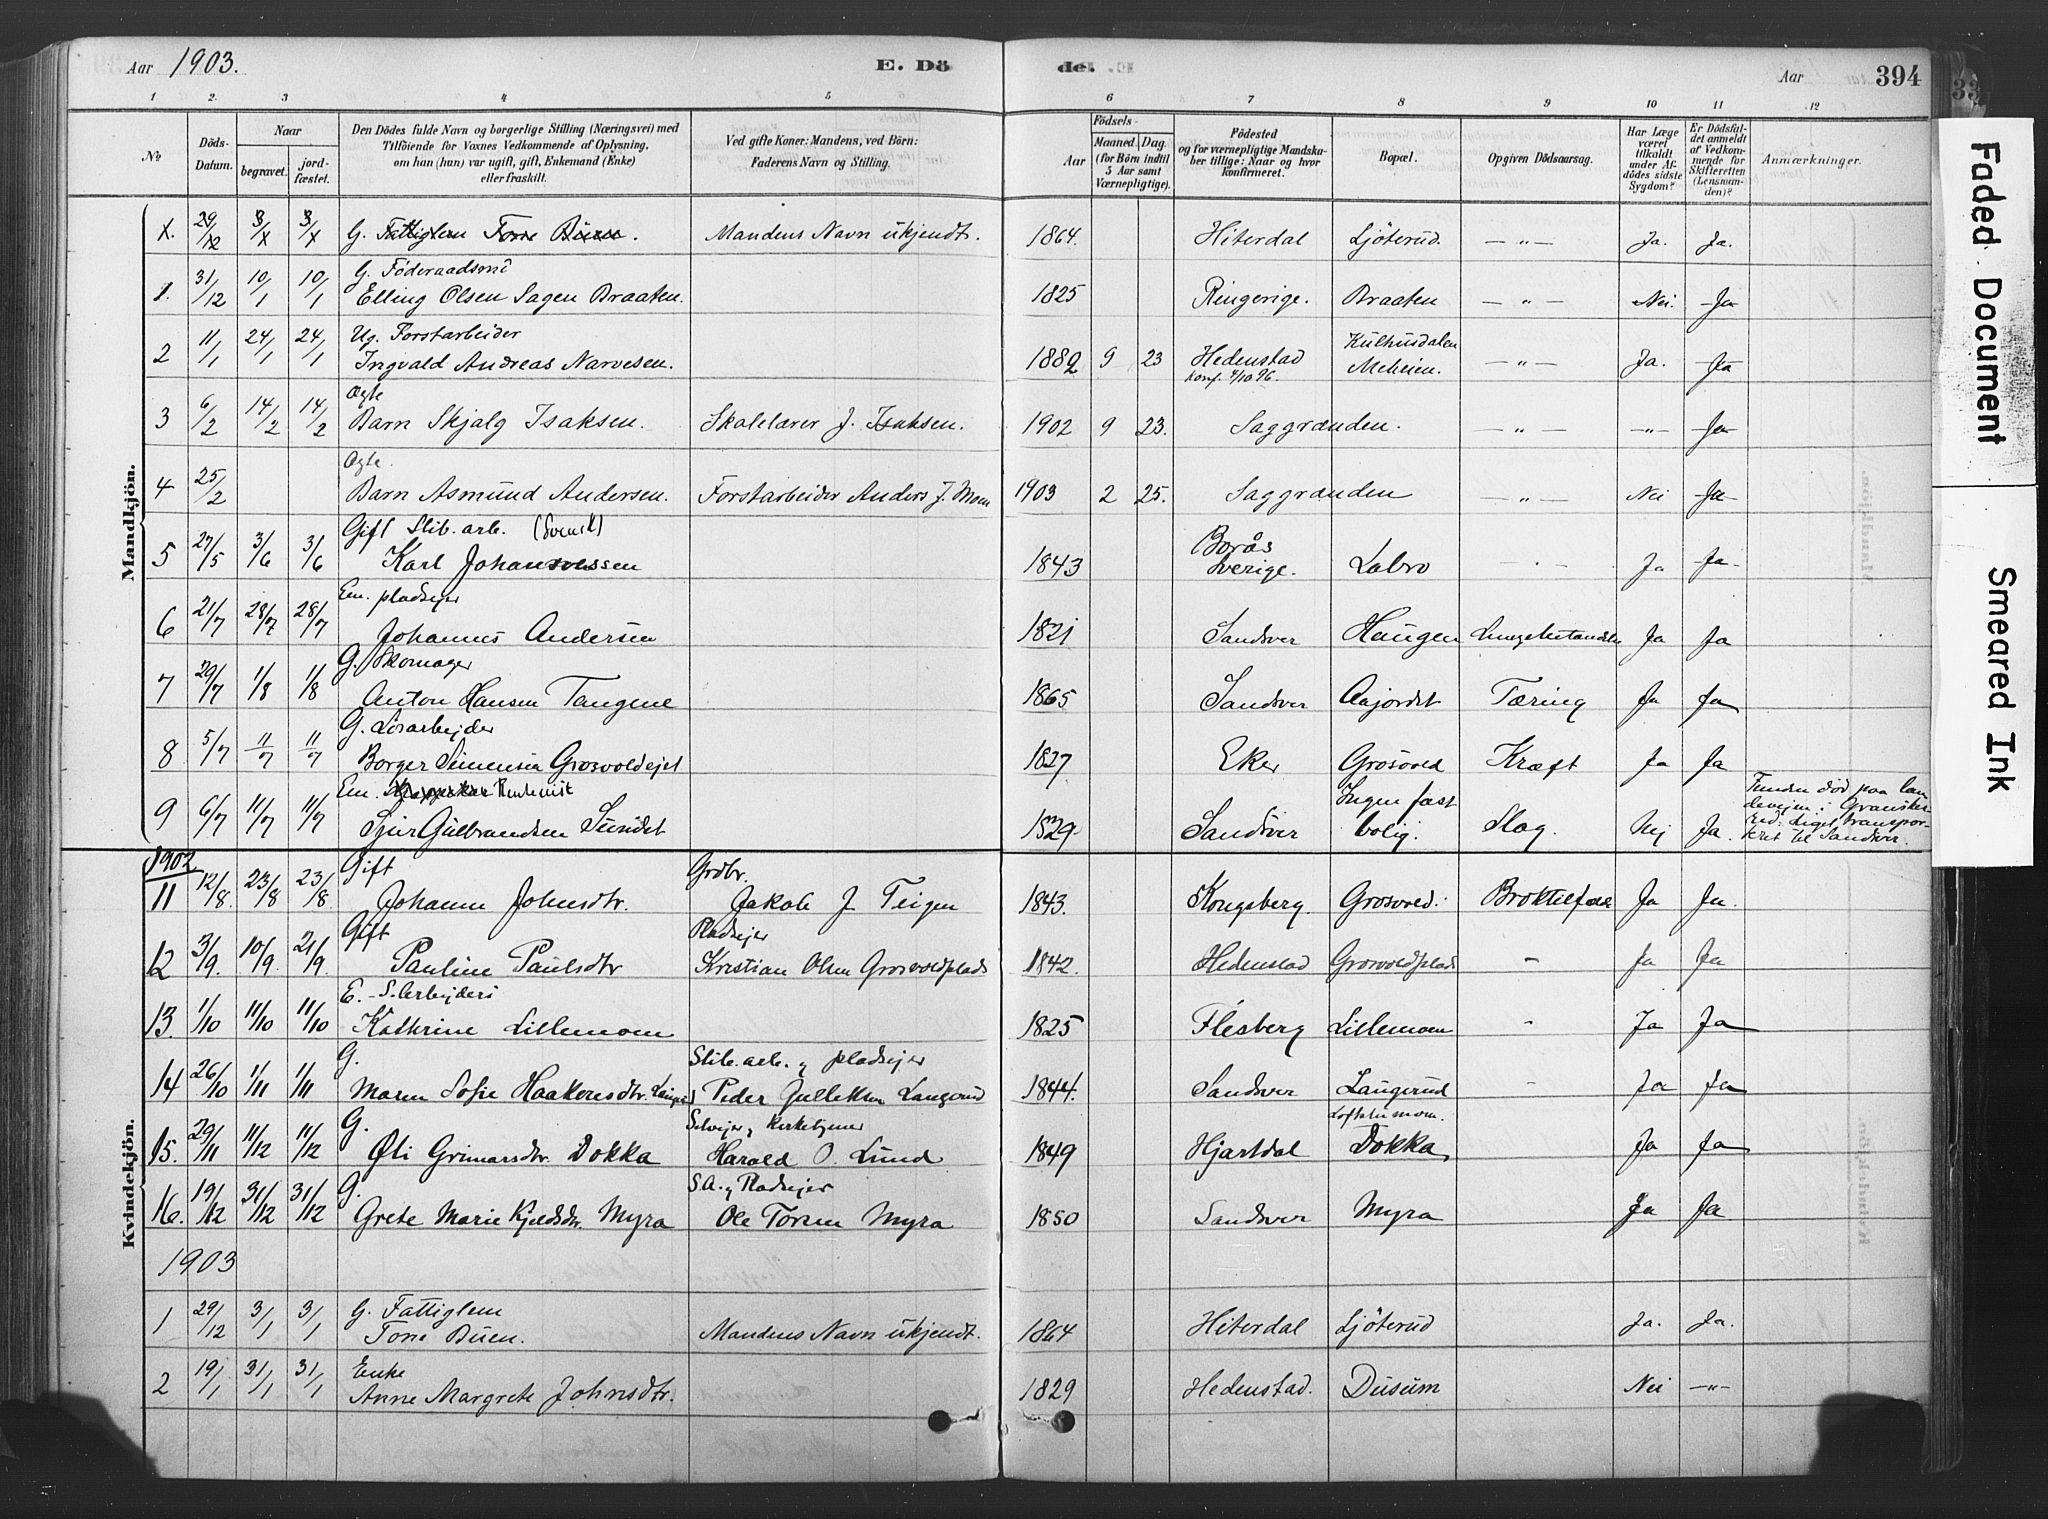 Aar 1903. E. Dö de. Aar 394
1 2. 3 4 5 6 7 8 9 10 11 12
№ Döds-Datum. Naar begravet. jordfæstet. Den Dödes fulde Navn og borgerlige Stilling (Næringsvei) med Tilföiende for Voxnes Vedkommende af Oplysning, om han (hun) var ugift, gift, Enkemand (Enke) eller fraskilt. Ved gifte Koner: Mandens, ved Börn: Faderens Navn og Stilling. Födsels- Aar Maaned. Dag. (for Börn indtil 5 Aar samt Værnepligtige). Födested og for værnepligtige Mandskaber tillige: Naar og hvor konfirmeret. Bopæl. Opgiven Dödsaarsag. Har Læge været tilkaldt under Afdödes sidste Sygdom? Er Dödsfaldet anmeldt af Vedkommende for Skifteretten (Lensmanden)? Anmærkninger.
Mandkjön.
29/12 3/X 3/X G. Fattiglem Tone Buen. Mandens Navn ukjendt. 1864. Hiterdal Ljöterud. — " — Ja. Ja.
G. Föderaadsm
1. 31/12 10/1 10/1 Elling Olsen Sagen Braaten. 1825 Ringerige. Braaten — " — Nei. Ja
Ug. Forstarbeider
2 11/1 24/1 24/1 Ingvald Andreas Narvesen. 1882 9 23 Hedenstad Konf. 4/10 96. Kulhusdalen Meheien. — " — Ja. Ja
Ægte
3 6/2 14/2 14/2 Barn Skjalg Isaksen. Skolelærer J. Isaksen. 1902 9 23. Saggrænden. — " — — " — Ja
Ægte.
4 25/2 Barn Asmund Andersen. Forstarbeider Anders J. Moen 1903 2 25. Saggrænden — " — Nei Ja
Gift Slib. arb. (Svensk)
5 27/5 3/6 3/6 Karl Johannessen 1843 Borås Sverige. Labro Ja Ja
Em. pladsejer
6 21/7 28/7 28/7 Johannes Andersen 1821 Sandsver Haugen Ja Ja
G. Skomager
7 29/7 1/8 1/8 Anton Hansen Tangene 1865 Sandsver Aajordet Tæring Ja Ja
G. Løsarbejder
8 5/7 11/7 11/7 Borger Simensen Grosvoldejet 1827 Eker Grosvold Kræft Ja Ja
Em.
9 6/7 11/7 11/7 Sjur Gulbrandsen Sundet 1829 Sandsver Ingen fast bolig. Slag. Nej Ja. Funden død paa landevejen i Gransherred. Liget transporteret til Sandsver.
Kvindekjön.
1902
Gift Grdbr.
11 12/8. 23/8 23/8. Johanne Johnsdtr. Jakob J. Teigen 1843. Kongsberg. Grosvold. Ja Ja.
Gift Pladsejer
12 3/9. 10/9 21/9 Pauline Paulsdtr Kristian Olsen Grosvoldplads 1842. Hedenstad Grosvoldplads " Ja Ja
E. - S. Arbejders
13. 1/10 11/10 11/10 Kathrine Lillemoen 1825 Flesberg Lillemoen " Ja Ja
G. Slib. arb. og pladsejer
14 26/10 1/11 1/11 Maren Sofie Haakensdtr. Peder Gulleksen Langerud 1844. Sandsver Langerud Ja Ja
G. Selvejer og Kirketjener
15. 29/11 11/12 11/12 Øli Grimarsdtr. Dokka Harald O. Lund 1849 Hjartdal Dokka Ja Ja
G. S.A. og Pladsejer
16. 19/12 31/12 31/12 Grete Marie Kjeldsdtr. Myra Ole Toresen Myra 1850 Sandsver Myra Ja Ja
1903
G. Fattiglem
1 29/12 3/1 3/1 Tone Buen. Mandens Navn ukjendt. 1864 Hiterdal Ljöterud Ja. Ja.
Enke
2 19/1 31/1 31/1 Anne Margrete Johnsdtr. 1829 Hedenstad. Dusum Nei — " —
Faded Document
Smeared Ink